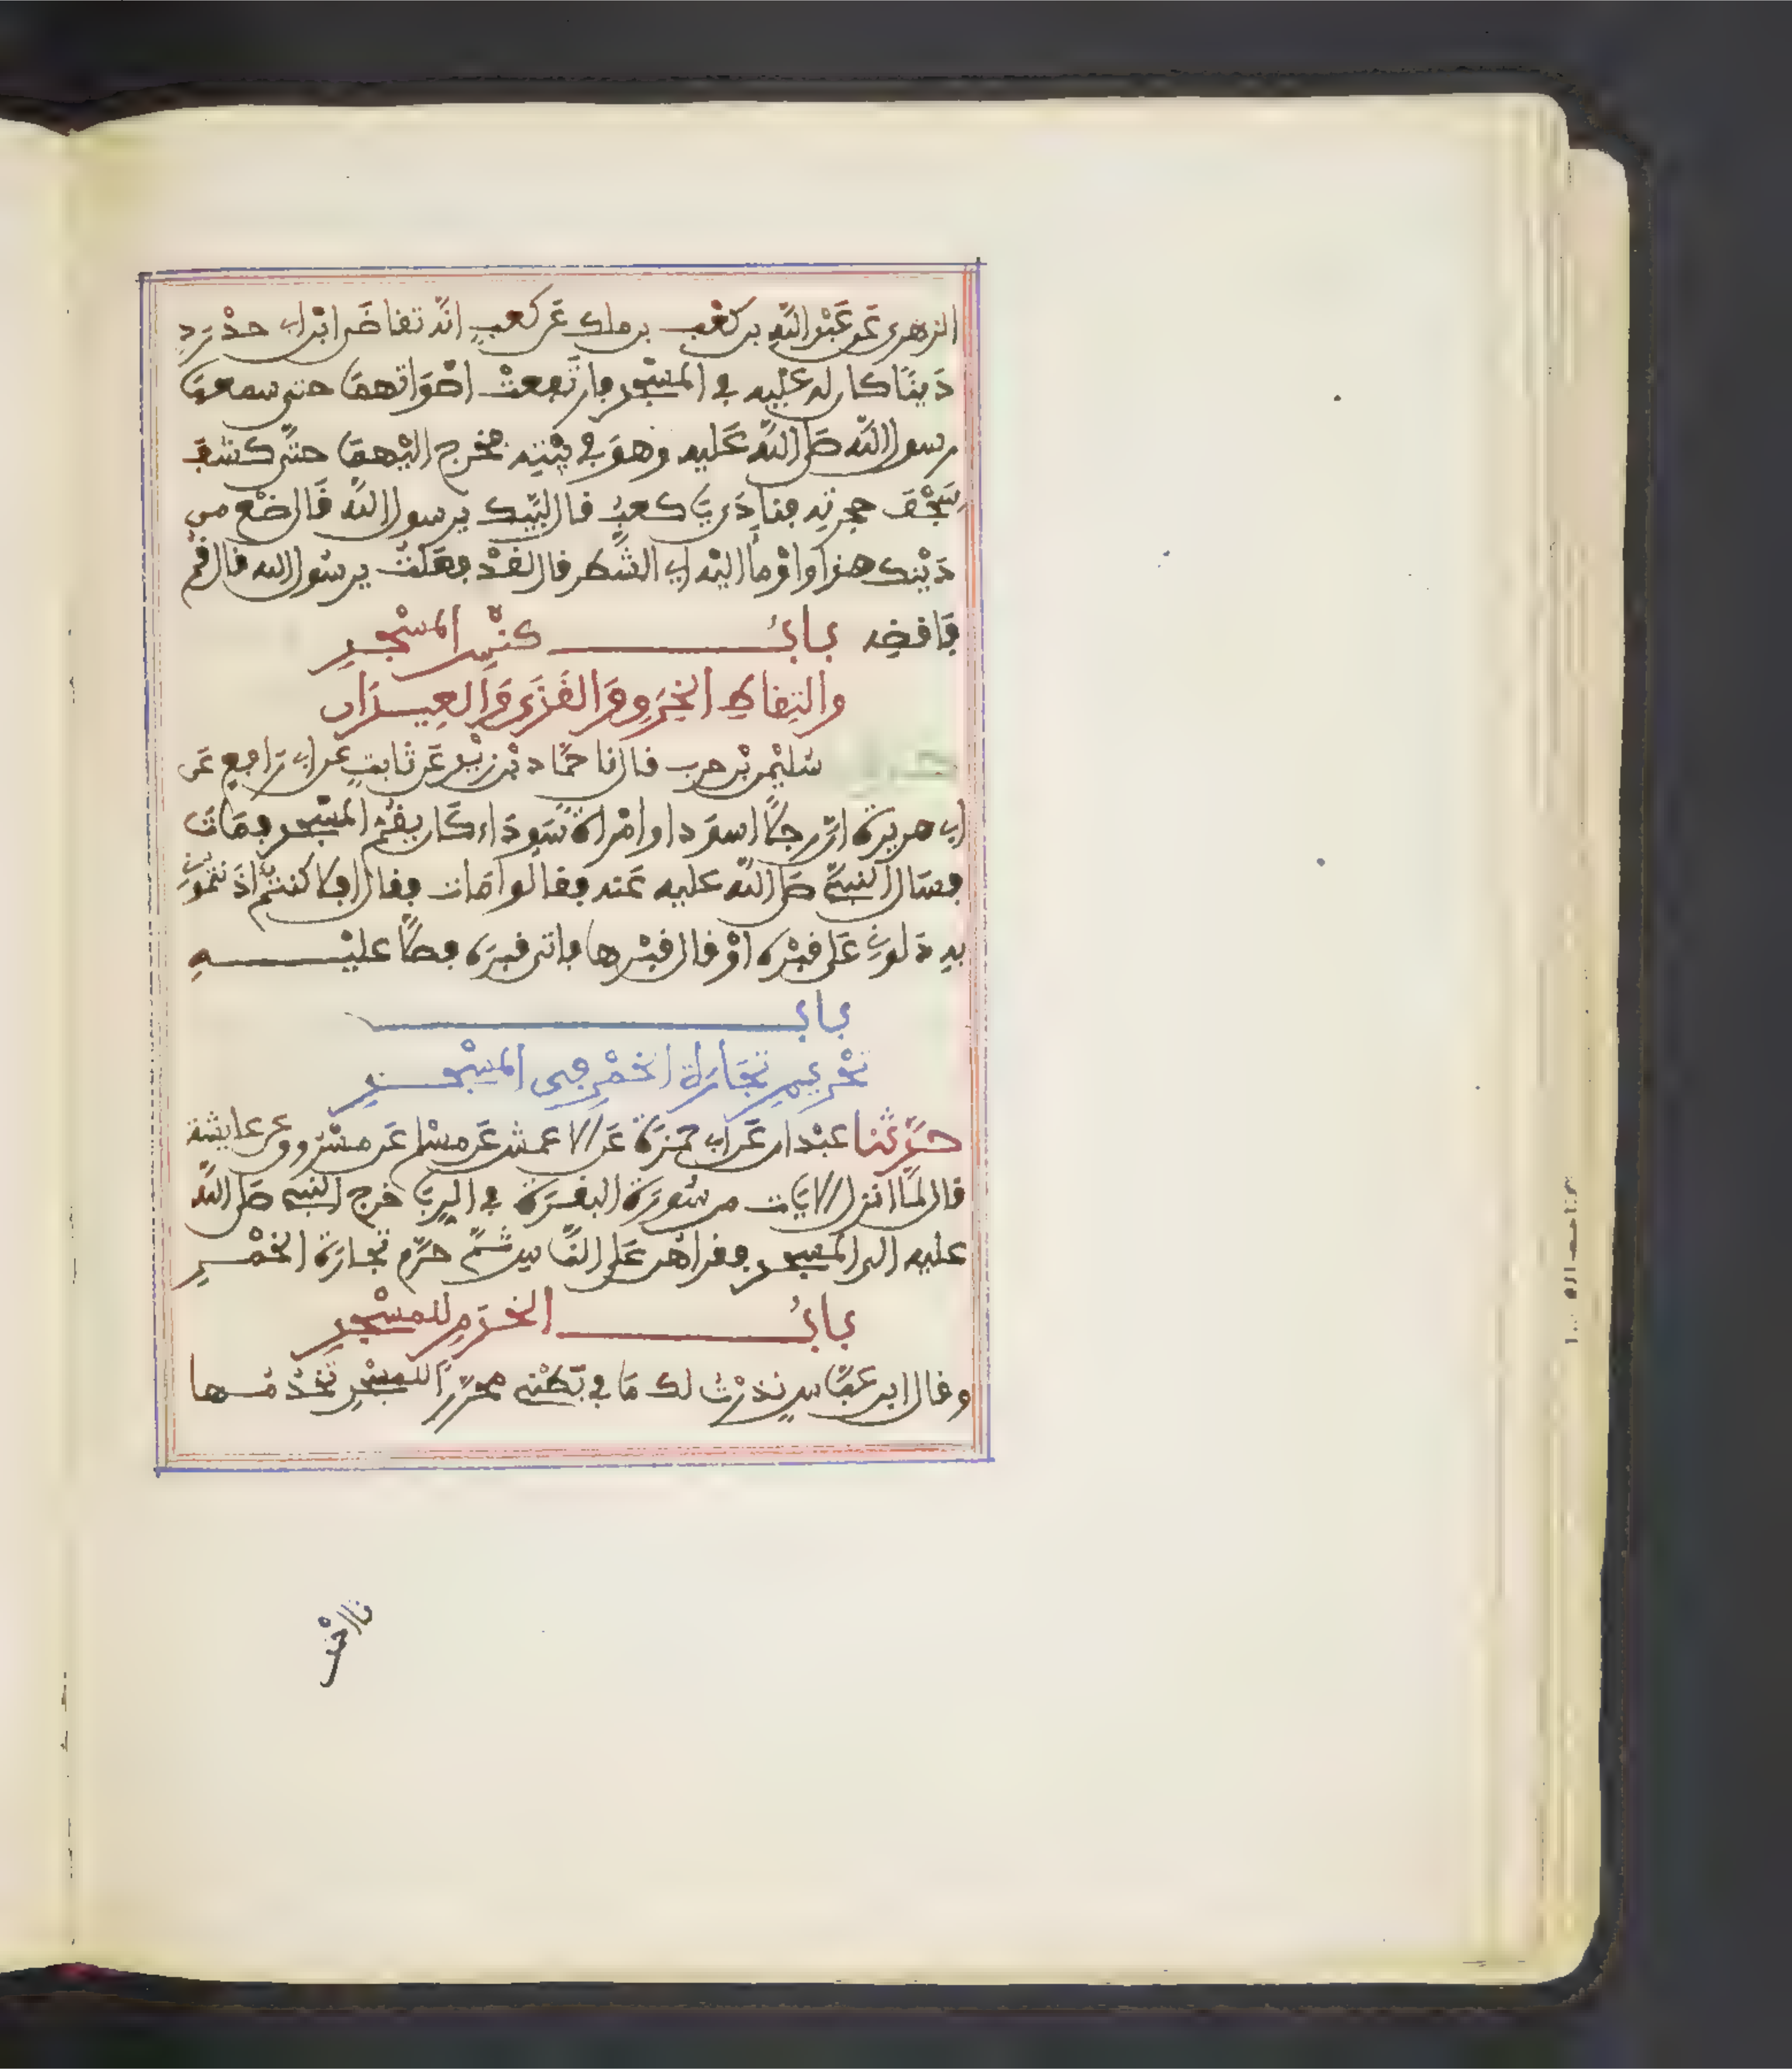 الزهري عن عبد الله بن كعب بن ملك عن كعب انه تقاضى ابن ابي حدرد
دينا كان له عليه في المسجد فارتفعت اصواتهما حتى سمعها
رسول الله صلى الله عليه وهو في بيته فخرج اليهما حتى كشف
سجف حجرته فنادى يا كعب قال لبيك يرسول الله قال ضع من
دينك هذا واومأ اليه اي الشطر قال لقد فعلت يرسول الله قال قم
فاقضه باب كنس المسجد
والتقاط الخرق والقذى والعيدان
سليمن بن حرب قال نا حماد بن زيد عن ثابت عن ابي رافع عن
ابي هريرة ان رجلا اسود او امراة سوداء كان يقم المسجد فمات
فسال النبي صلى الله عليه عنه فقالوا مات فقال افلا كنتم اذنتموني
به دلوني على قبره او قال قبرها فاتى قبره فصلا عليه
باب
تحريم تجارة الخمر في المسجد
حدثنا عبدان عن ابي حمزة عن الاعمش عن مسلم عن مسروق عن عايشة
قال لما انزل الايات من سورة البقرة في الربا خرج النبي صلى الله
عليه الى المسجد فقراهن على الناس ثم حرم تجارة الخمر
باب الخدم للمسجد
وقال ابن عباس نذرت لك ما في بطني محررا للمسجد تخدمها
نا احمد